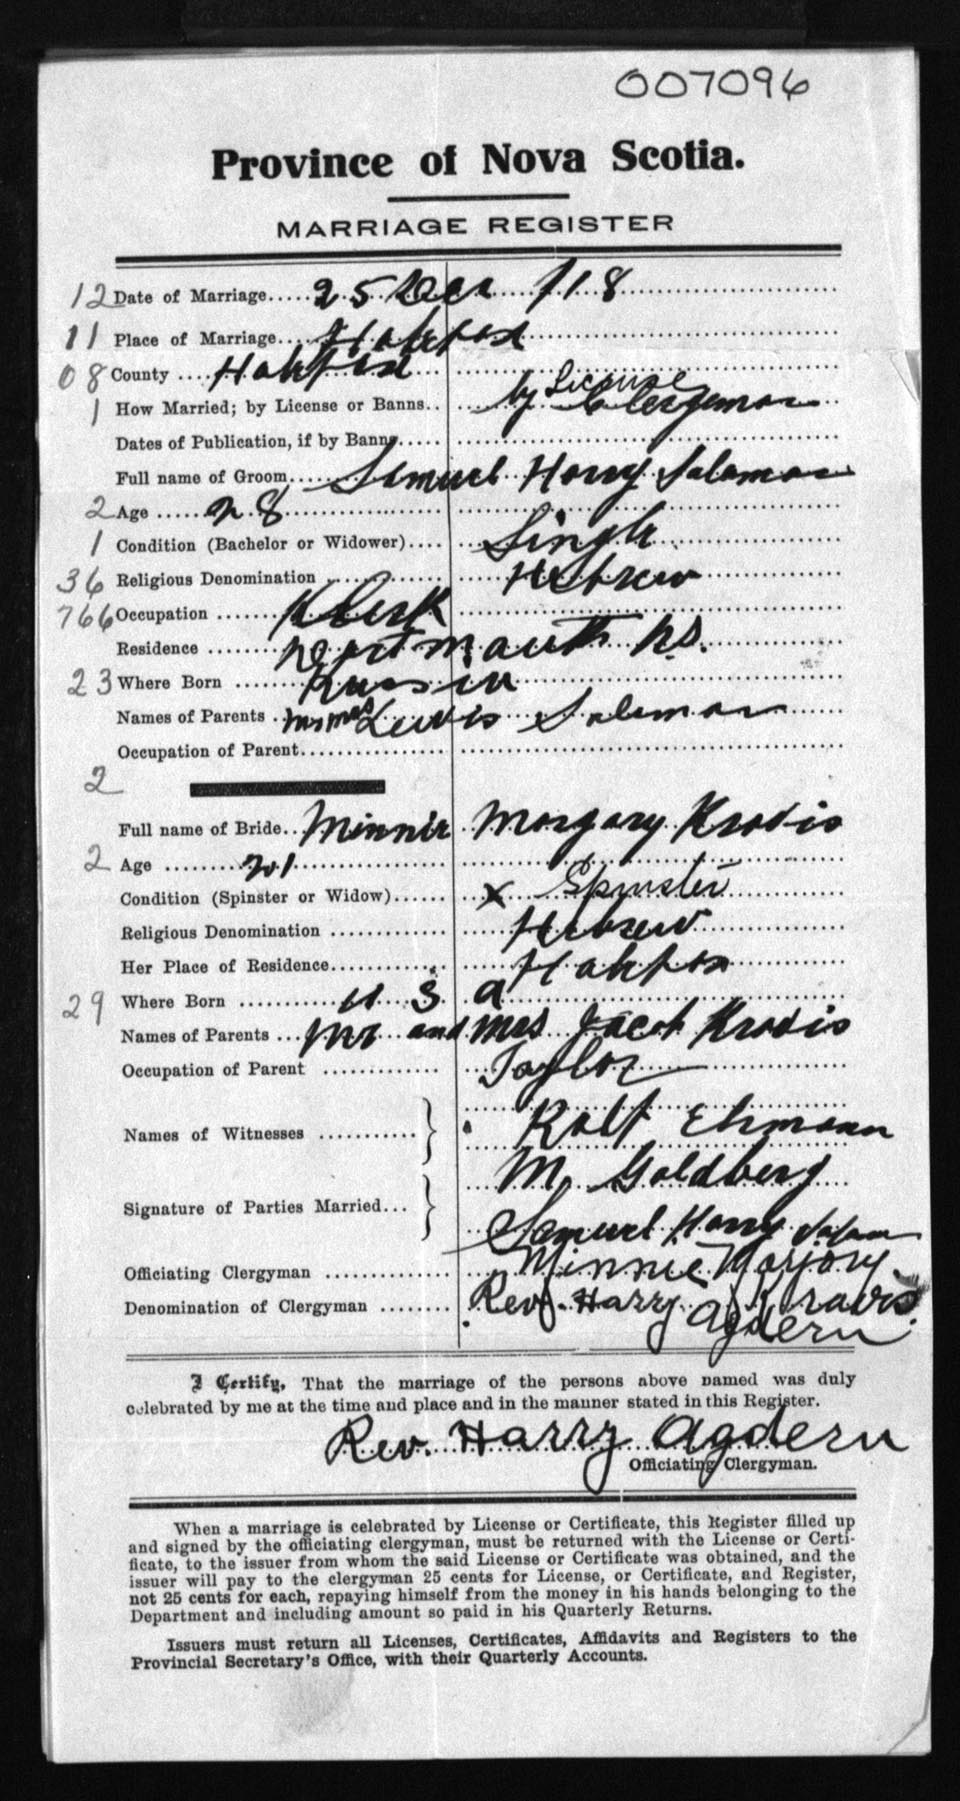 007096
Province of Nova Scotia.
MARRIAGE REGISTER
12 Date of Marriage..... 25 Dec 918
11 Place of Marriage... Halifax
08 County .... Halifax
License
1 How Married; by License or Banns.. by Clergeman
Dates of Publication, if by Banns.....
Full name of Groom...... Samuel Harry Salaman
2 Age ...... 28
1 Condition (Bachelor or Widower).... Single
36 Religious Denomination ............ Hebrew
766 Occupation ...... Klerk
Residence ........ Dartmauth N.S.
23 Where Born ...... Russia
Names of Parents .. Mr Mrs Lewis Salaman
Occupation of Parent..................
2
Full name of Bride.. Minnie Morgary Kravis
2 Age ........ 21
Condition (Spinster or Widow)...... x Spinster
Religious Denomination ............ Hebrew
Her Place of Residence............. Halifax
29 Where Born .......... U S a
Names of Parents ... Mr and Mrs Jacob Kravis
Occupation of Parent ............. Taylor
Names of Witnesses ........... } Ralf Ehmann
M. Goldberg
Signature of Parties Married... } Samuel Harry
Officiating Clergyman ............. Minnie Marjory
Kravis.
Denomination of Clergyman ........ Rev. Harry Agdern
I Certify, That the marriage of the persons above named was duly
celebrated by me at the time and place and in the manner stated in this Register.
Rev. Harry Agdern
Officiating Clergyman.
When a marriage is celebrated by License or Certificate, this Register filled up
and signed by the officiating clergyman, must be returned with the License or Certi-
ficate, to the issuer from whom the said License or Certificate was obtained, and the
issuer will pay to the clergyman 25 cents for License, or Certificate, and Register,
not 25 cents for each, repaying himself from the money in his hands belonging to the
Department and including amount so paid in his Quarterly Returns.
Issuers must return all Licenses, Certificates, Affidavits and Registers to the
Provincial Secretary's Office, with their Quarterly Accounts.